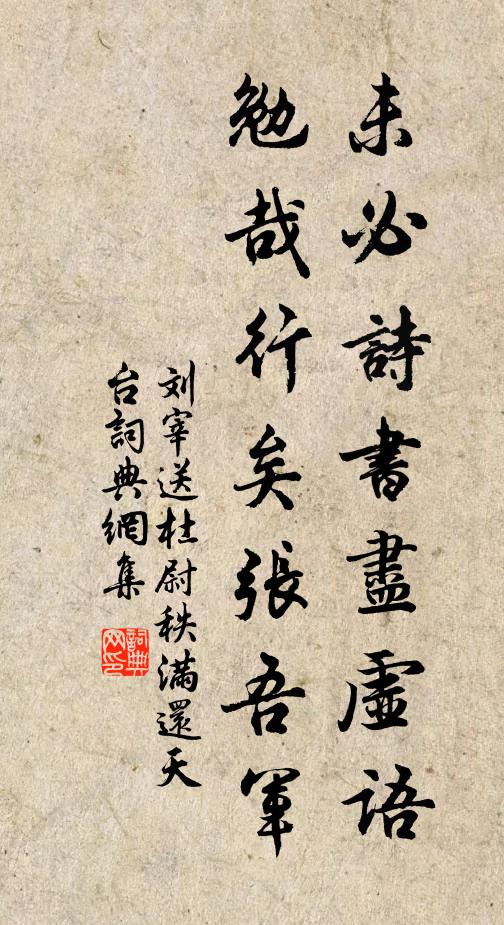 未必詩書盡虛語
勉哉行矣張吾軍
刘宰送杜尉秩滿還天
台詞典網集
詞典
网印